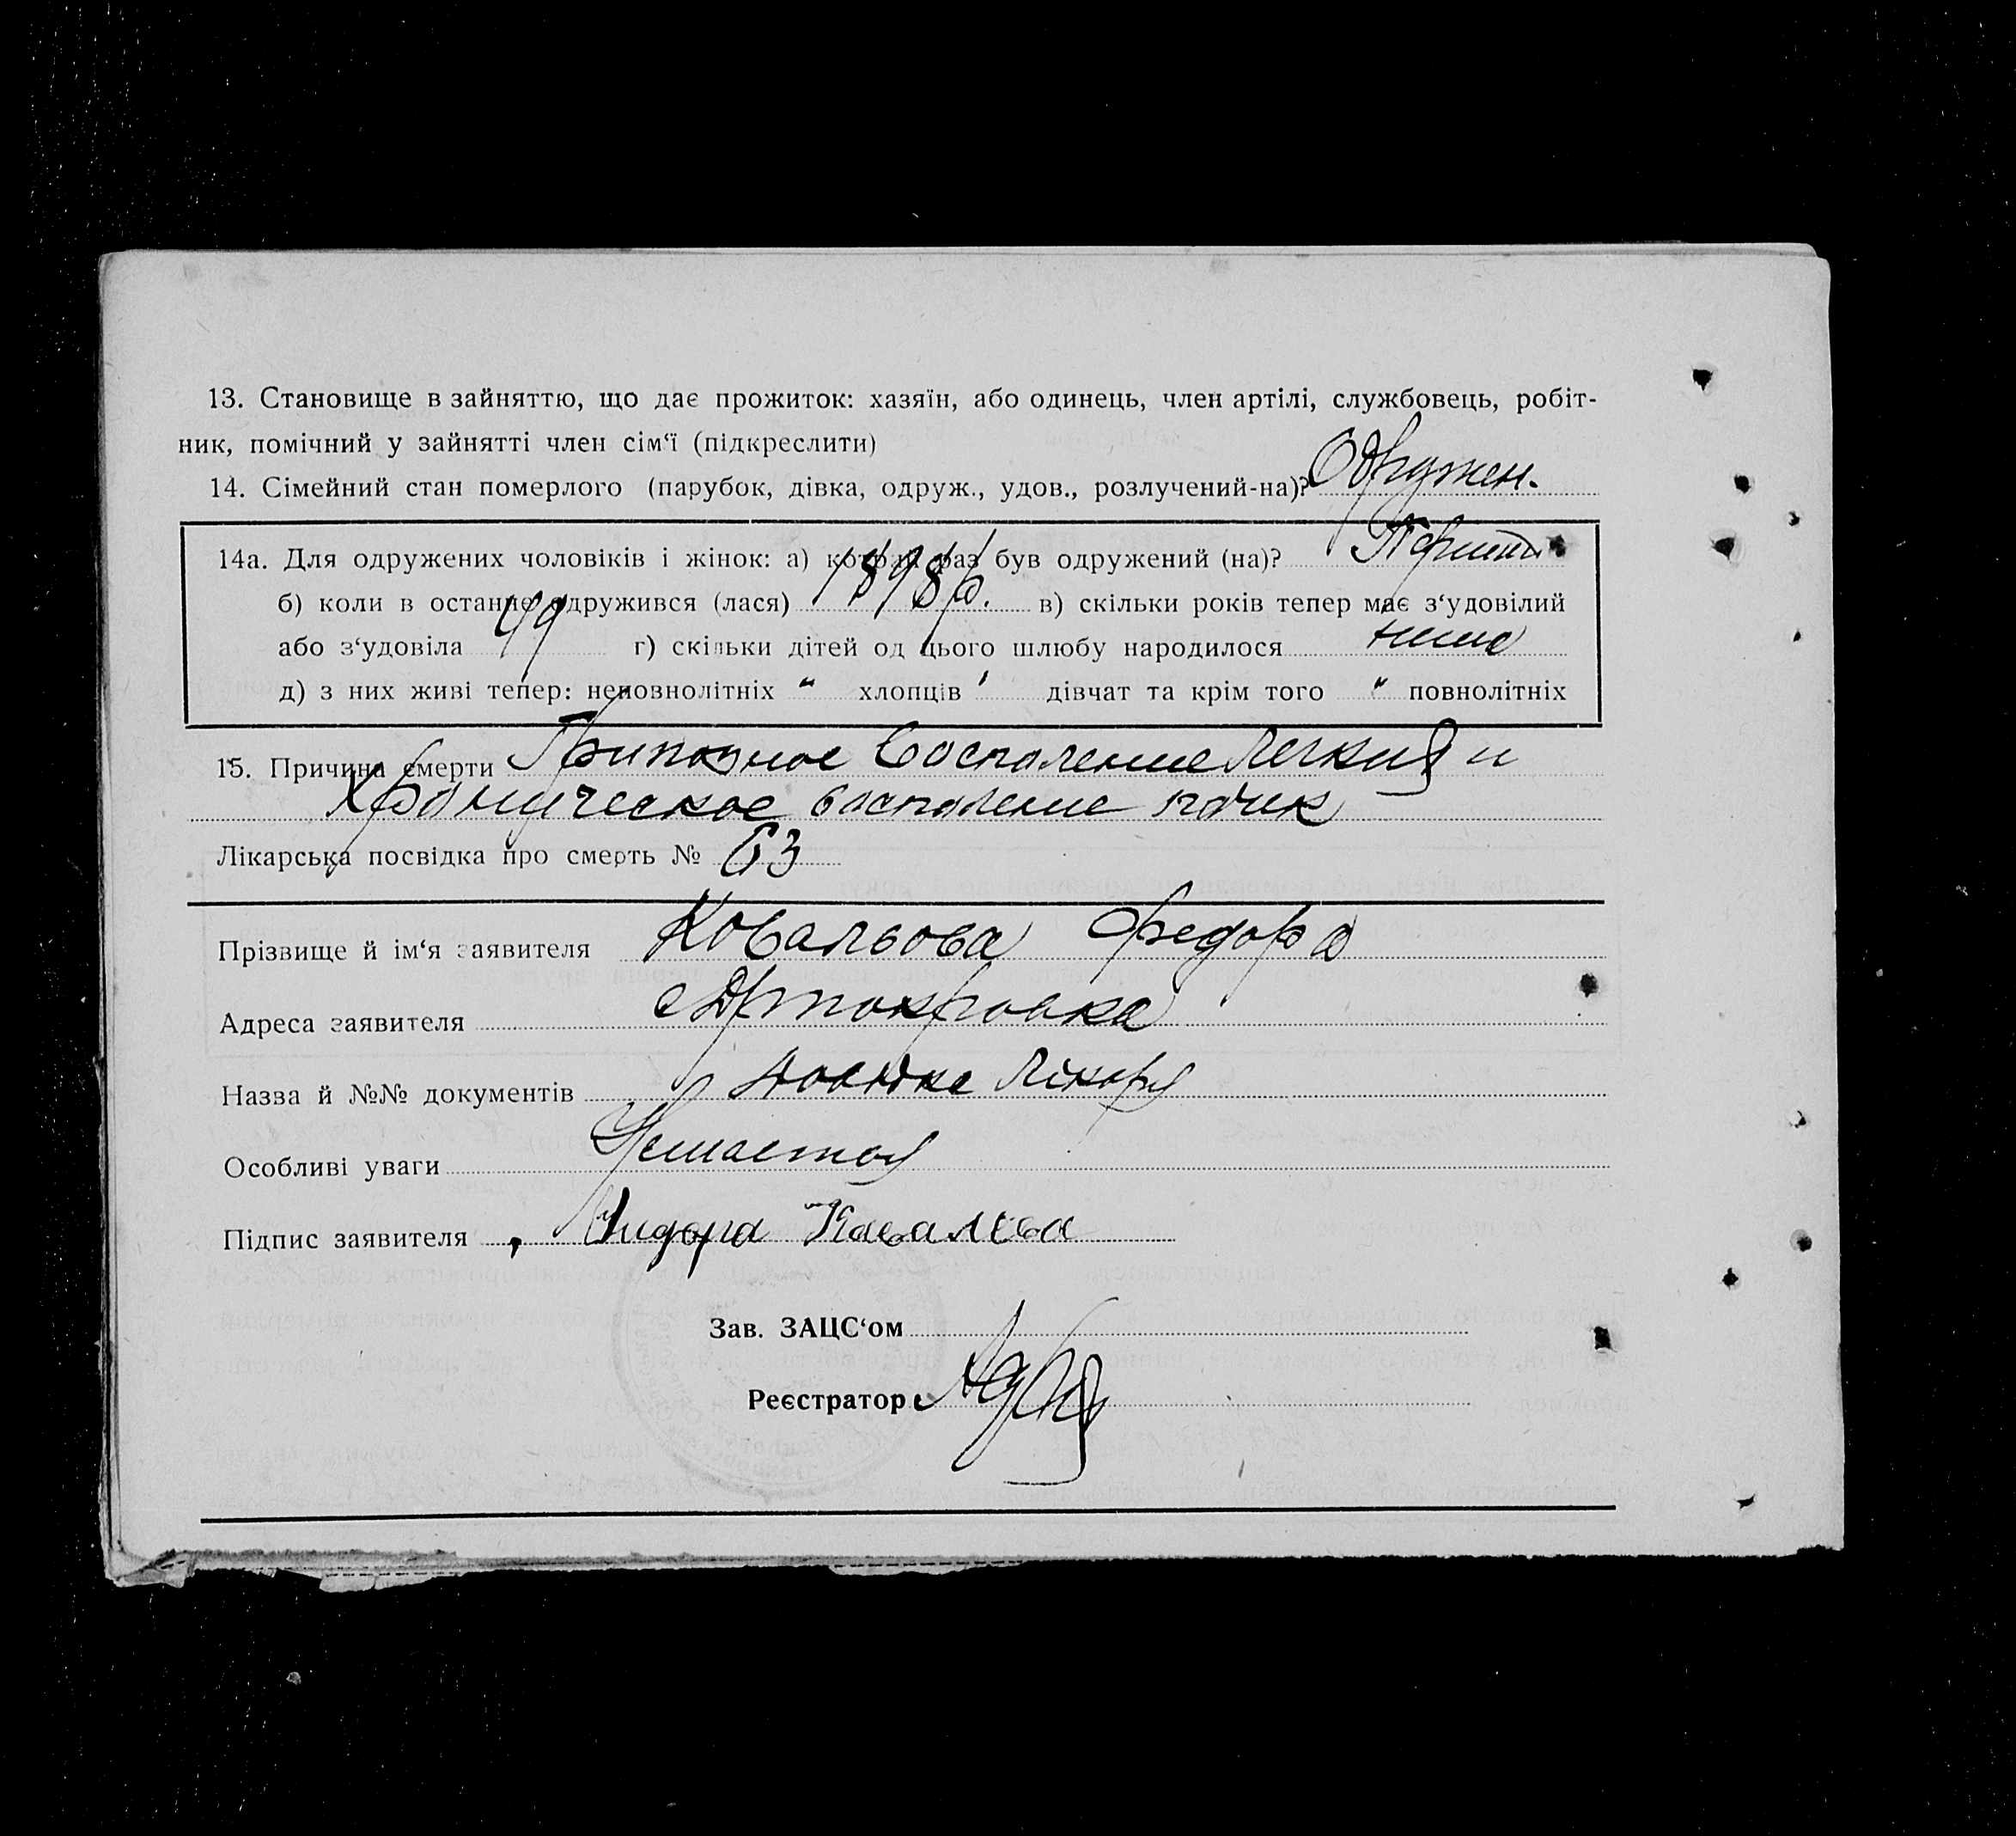 13. Становище в зайняттю, що дає прожиток: хазяїн, або одинець, член артілі, службовець, робіт-
ник, помічний у зайнятті член сім‘ї (підкреслити)
14. Сімейний стан померлого (парубок, дівка, одруж., удов., розлучений-на)? Одружен.
14а. Для одружених чоловіків і жінок: а) котрий раз був одружений (на)? Перший
б) коли в останнє одружився (лася) 1898 р. в) скільки років тепер має з‘удовілий
або з‘удовіла 49 г) скільки дітей од цього шлюбу народилося нема
д) з них живі тепер: неповнолітніх " хлопців " дівчат та крім того " повнолітніх
15. Причина смерти Грипозное воспаление легких и
Хроническое воспаление почек
Лікарська посвідка про смерть № 63
Прізвище й ім‘я заявителя Ковальова Федора
Адреса заявителя
Назва й №№ документів Довідка Лікаря
Особливі уваги
Підпис заявителя Хидора Кавалева
Зав. ЗАЦС‘ом
Реєстратор